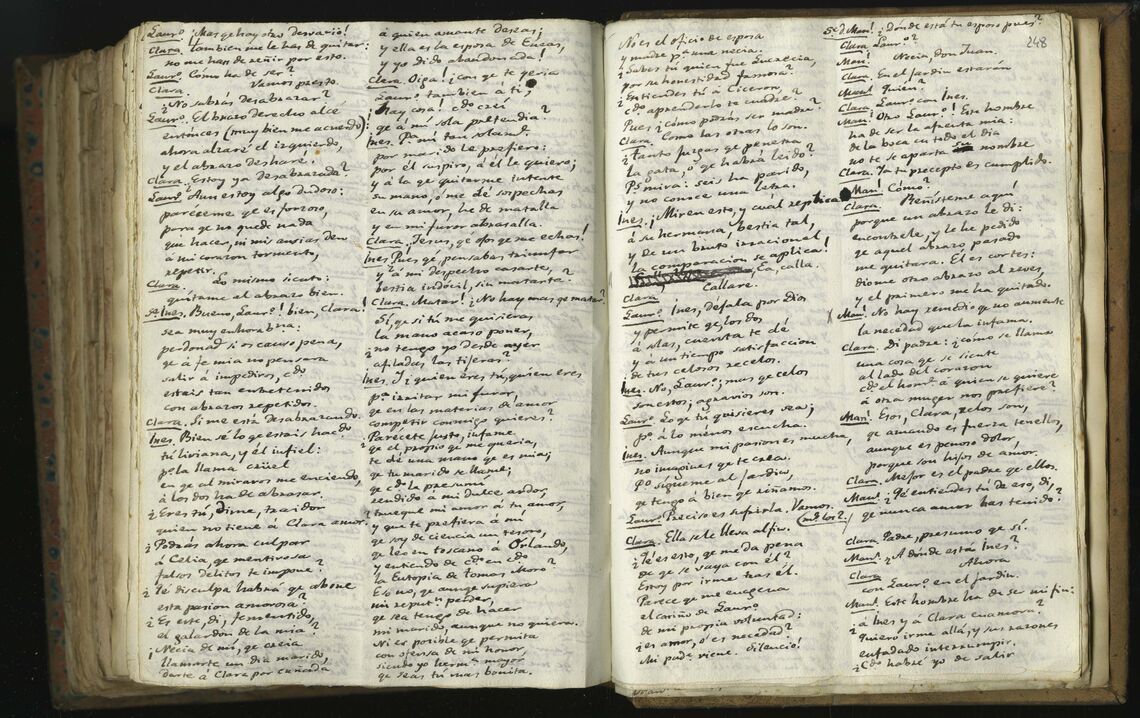 Laurº ¡Mas qe hay otro desvario!
Clara. tambien me le has de quitar:
no me han de reñir por esto.
Laurº. Cómo ha de ser?
Clara. Vamos presto.
¿No sabrás desabrazar?
Laurº. El brazo derecho alcé
entónces (muy bien me acuerdo):
ahora alzaré el izquierdo,
y el abrazo desharé.
Clara. ¿Estoy ya desabrazada?
Laurº. Aun estoy algo dudoso:
pareceme qe es forzoso,
para qe no quede nada
que hacer, ni mis ansias den
á mi corazon tormento,
repetir.
Clara. Lo mismo siento:
quitame el abrazo bien.
Sª Ines. Bueno, Laurº! bien, Clara!
sea muy enhorabna:
perdonad si os causo pena,
qe á fe mia no pensara
salir á impediros, cdo
estais tan entretenidos
con abrazos repetidos.
Clara. Si me está desabrazando.
Ines. Bien se lo qe estais hacdo
tú liviana, y él infiel:
pª la llama crüel
en qe al miraros me enciendo,
á los dos ha de abrasar.
¿Eres tú, dime, traidor
quien no tiene á Clara amor.
¿Podrás ahora culpar
á Celia, qe mentirosa
falsos délitos te impone?
¿Qé disculpa habrá qe abone
esta pasion amorosa?
¿Es este, di, fementido,
el galardon de la mia?
¡Necia de mi, qe creia
llamarte un dia marido,
darte á Clara por cuñada
á quien amante deseas;
y ella es la esposa de Eneas,
y yo dido abandonada!
Clara. Oiga! ¿con qe te qeria
Laurº tambien á ti,
hay cosa! Cdo creí
qe á mí sola pretendia?
Ines. Pª mí tan solamte
por marido le prefiero:
por él suspiro, á él le quiero;
y á la qe quitarme intente
su mano, ó me dé sospechas
en su amor, he de matalla
y en mi furor abrasalla.
Clara. Jesus, qe fieros me echas!
Ines. Pues qe, pensabas triunfar
yª á mi despecho casarte,
bestia indócil, sin matarte?
Clara. Matar! ¿No hay mas qe matar?
Sí, qe si tú me quisieras
la mano acaso poner,
¿no tengo yo desde ayer
afiladas las tijeras?
Ines. ¿Y quien eres tú, quien eres
pª irritar mi furor,
qe en las materias de amor
competir conmigo quieres?
Parécete justo, infame
qe el propio qe me queria,
te dé una mano qe es mia;
qe tu marido se llame;
qe cdo la presumí
rendido á mi dulce ardor,
trueque mi amor á tu amor,
y que te prefiera á mí
qe soy de ciencia un tesoro,
qe leo en toscano á Orlando,
y entiendo de cdo en cdo
la Eutopia de Tomas Moro?
Eso no, qe aunqe supiera
mi reputn perder,
qe sea tengo de hacer
mi marido, aunque no quiera.
Ni es posible qe permita
con ofensa de mi honor,
siendo yo herma mayor
qe seas tú mas bonita.
No es el oficio de esposa
y madre pª una necia.
¿Sabes tú quien fue Lucrecia,
por su honestidad famosa?
¿Entiendes tú á Ciceron,
cdo aprenderlo te cuadre?
Pues ¿cómo podrás ser madre?
Clara. Como las otras lo son.
¿Tanto juzgas qe penetra
la gata, ó qe habrá leido?
Pº mira: seis ha parido,
y no conoce una letra.
Ines. ¡Miren esto, y cuál replica
á su hermana, bestia tal,
y de un bruto irracional
la comparacion se aplica!
Ea, calla.
Clara. Callaré.
Laurº. Ines, déjala por Dios
y permite qe, los dos
á solas, cuenta te dé
y á un tiempo satisfaccion
de tus celosos recelos.
Ines. No, Laurº; mas qe celos
son estos; agravios son.
Laurº. Lo qe tú quisieres sea;
pº á lo ménos escucha.
Ines. Aunque mi pasion es mucha,
no imagines qe te crea.
Pº sígueme al jardin,
qe tengo á bien qe riñamos.
Laurº. Preciso es sufrirla. Vamos.
Clara. Ella se le lleva al fin.
¿Qé es esto, qe me da pena
de qe se vaya con él?
Estoy por irme tras él.
Parece qe me enagena
el cariño de Laurº
de mi propia voluntad:
¿es amor, ó es necedad?
Mi pade viene. Silencio!
248
Sº d Manl. ¿Dónde está tu esposo pues?
Clara. Laurº?
Manl. Necia, don Juan.
Clara. En el jardin estarán
Manl. Quién.
Clara. Laurº con Ines.
Manl. Otro Laurº! Este hombre
ha de ser la afrenta mia:
de la boca en todo el dia
no te se aparta su nombre
Clara. Ya tu precepto es cumplido.
Manl. Cómo?
Clara. Reñísteme aquí
porque un abrazo le di:
encontréle, y le he pedido
qe aquel abrazo pasado
me quitara. El es cortes:
diome otro abrazo al reves,
y el primero me ha quitado.
Manl. No hay remedio qe no aumente
la necedad que la infama.
Clara. Di padre: ¿cómo se llama
una cosa qe se siente
al lado del corazon
cdo el home á quien se quiere
á otra muger nos prefiere?
Manl. Esos, Clara, zelos son,
qe amando es fuerza tenellos,
aunque es penoso dolor,
porque son hijos de amor.
Clara. Mejor es el padre qe ellos.
Manl. ¿Qé entiendes tú de eso, di,
qe nunca amor has tenido?
Clara. Padre, presumo qe sí.
Manl. ¿A dónde está Ines?
Clara. Ahora
con Laurº en el jardin.
Manl. Este hombre ha de ser mi fin:
¿á Ines y á Clara enamora?
quiero irme allá, y sus razones
enfadado interrumpir.
¿Cdo habré yo de salir